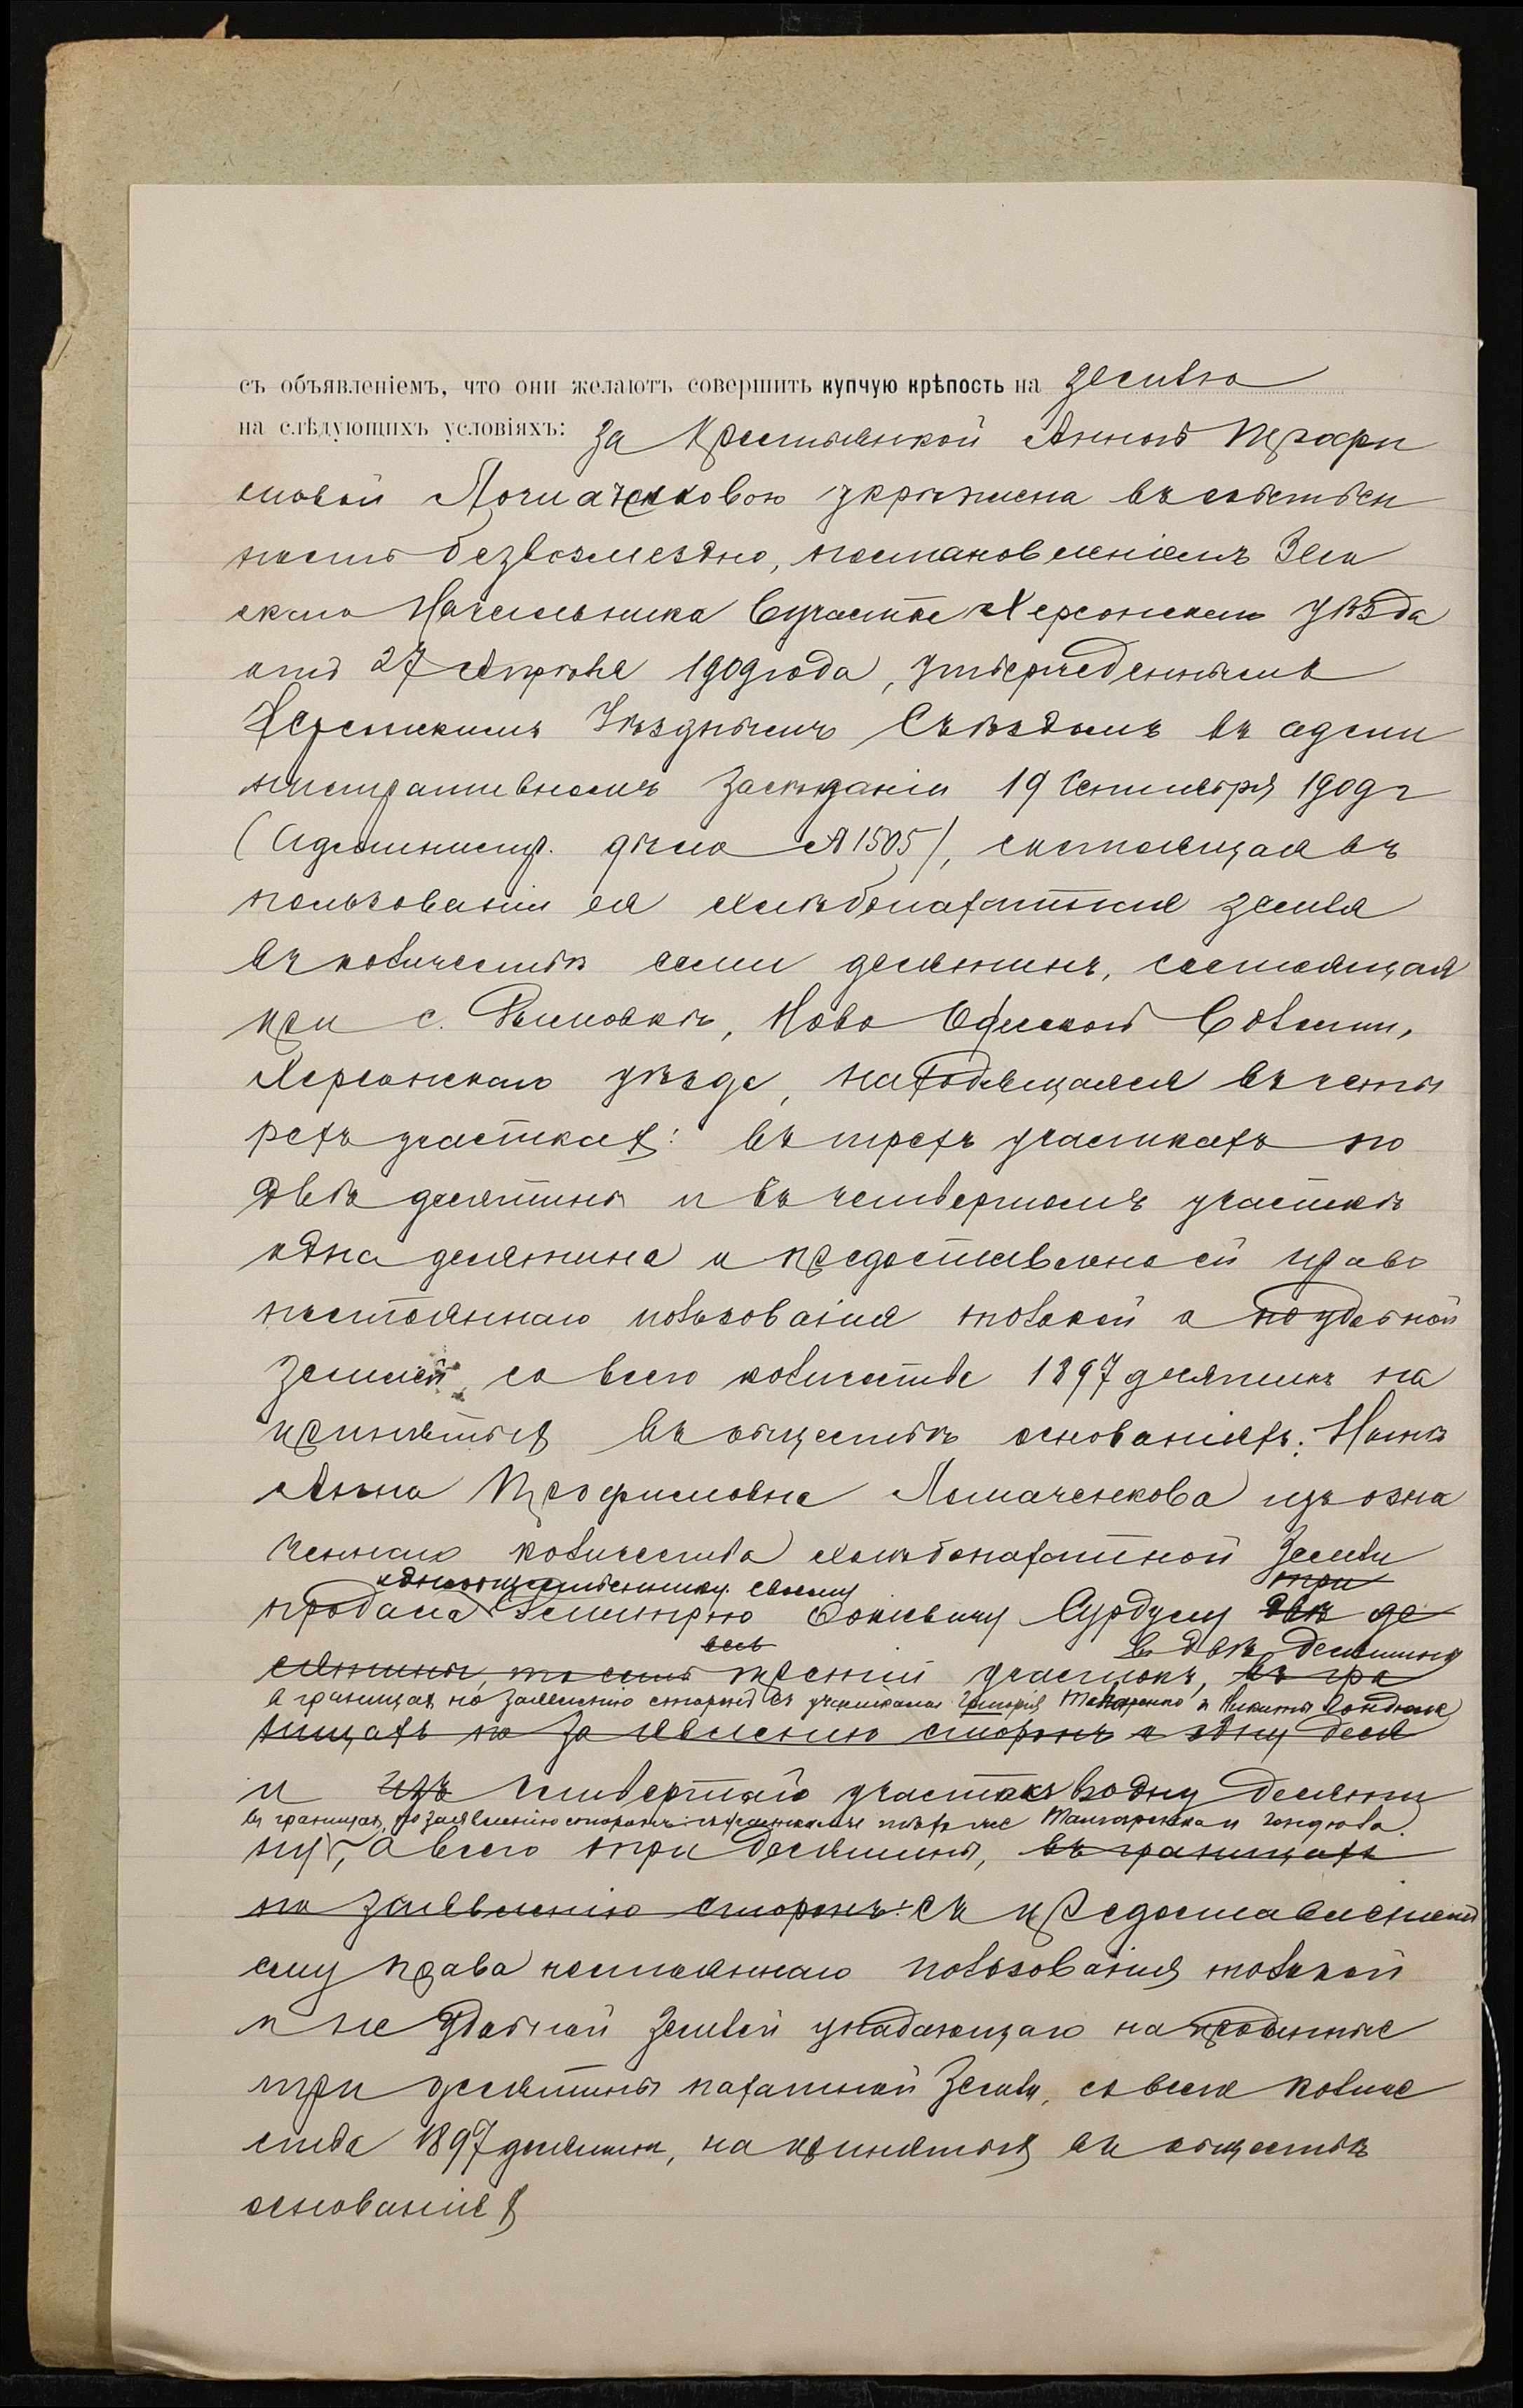 съ объявленіемъ, что они желаютъ совершить купчую крѣпость на землю
на слѣдующихъ условіяхъ: За Крестьянкой Анной Трофи
мовой Ломаченковою укрѣплена въ собствен
ность безвозмездно, постановленіемъ Зем
скаго Начальника 6 участка Херсонскаго уѣзда
отъ 27 Апрѣля 1909 года, утвержденнымъ
Херсонскимъ Уѣзднымъ Съѣздомъ въ адми
нистративномъ засѣданіи 19 Сентября 1909 г
(Администр. дѣло № 1505), состоящая въ
пользованіи ея хлѣбопахатная земля
въ количествѣ семи десятинъ, состоящая
при с. , Ново Одесской Волости,
Херсонскаго уѣзда, находящаяся въ четы
рехъ участкахъ: въ трехъ участкахъ по
двѣ десятины и въ четвертомъ участкѣ
одна десятина и предоставлено ей право
постояннаго пользованія толокой и неудобной
землей, со всего количества 1897 десятинъ на
принятыхъ въ обществѣ основаніяхъ. Нынѣ
Анна Трофимовна Ломаченкова изъ озна
ченнаго количества хлѣбопахатной земли
одно­общественнику своему три
продала Димитрію Сурдулу двѣ де
весь въ двѣ десятины
сятины, то есть третій участокъ, въ гра
въ границахъ по заявленію сторонъ съ участками и Никиты
ницахъ по заявленію сторонъ и одну деся
и изъ четвертаго участокъ въ одну десяти
въ границахъ, по заявленію сторонъ: съ участками тѣхъ же и
ну, а всего три десятины, въ границахъ
по заявленію сторонъ: съ предоставленіемъ
ему права постояннаго пользованія толокой
и не удобной землей упадающаго на проданныя
три десятины пахатной земли, со всего количе
ства 1897 десятинъ, на принятыхъ въ обществѣ
основаніяхъ